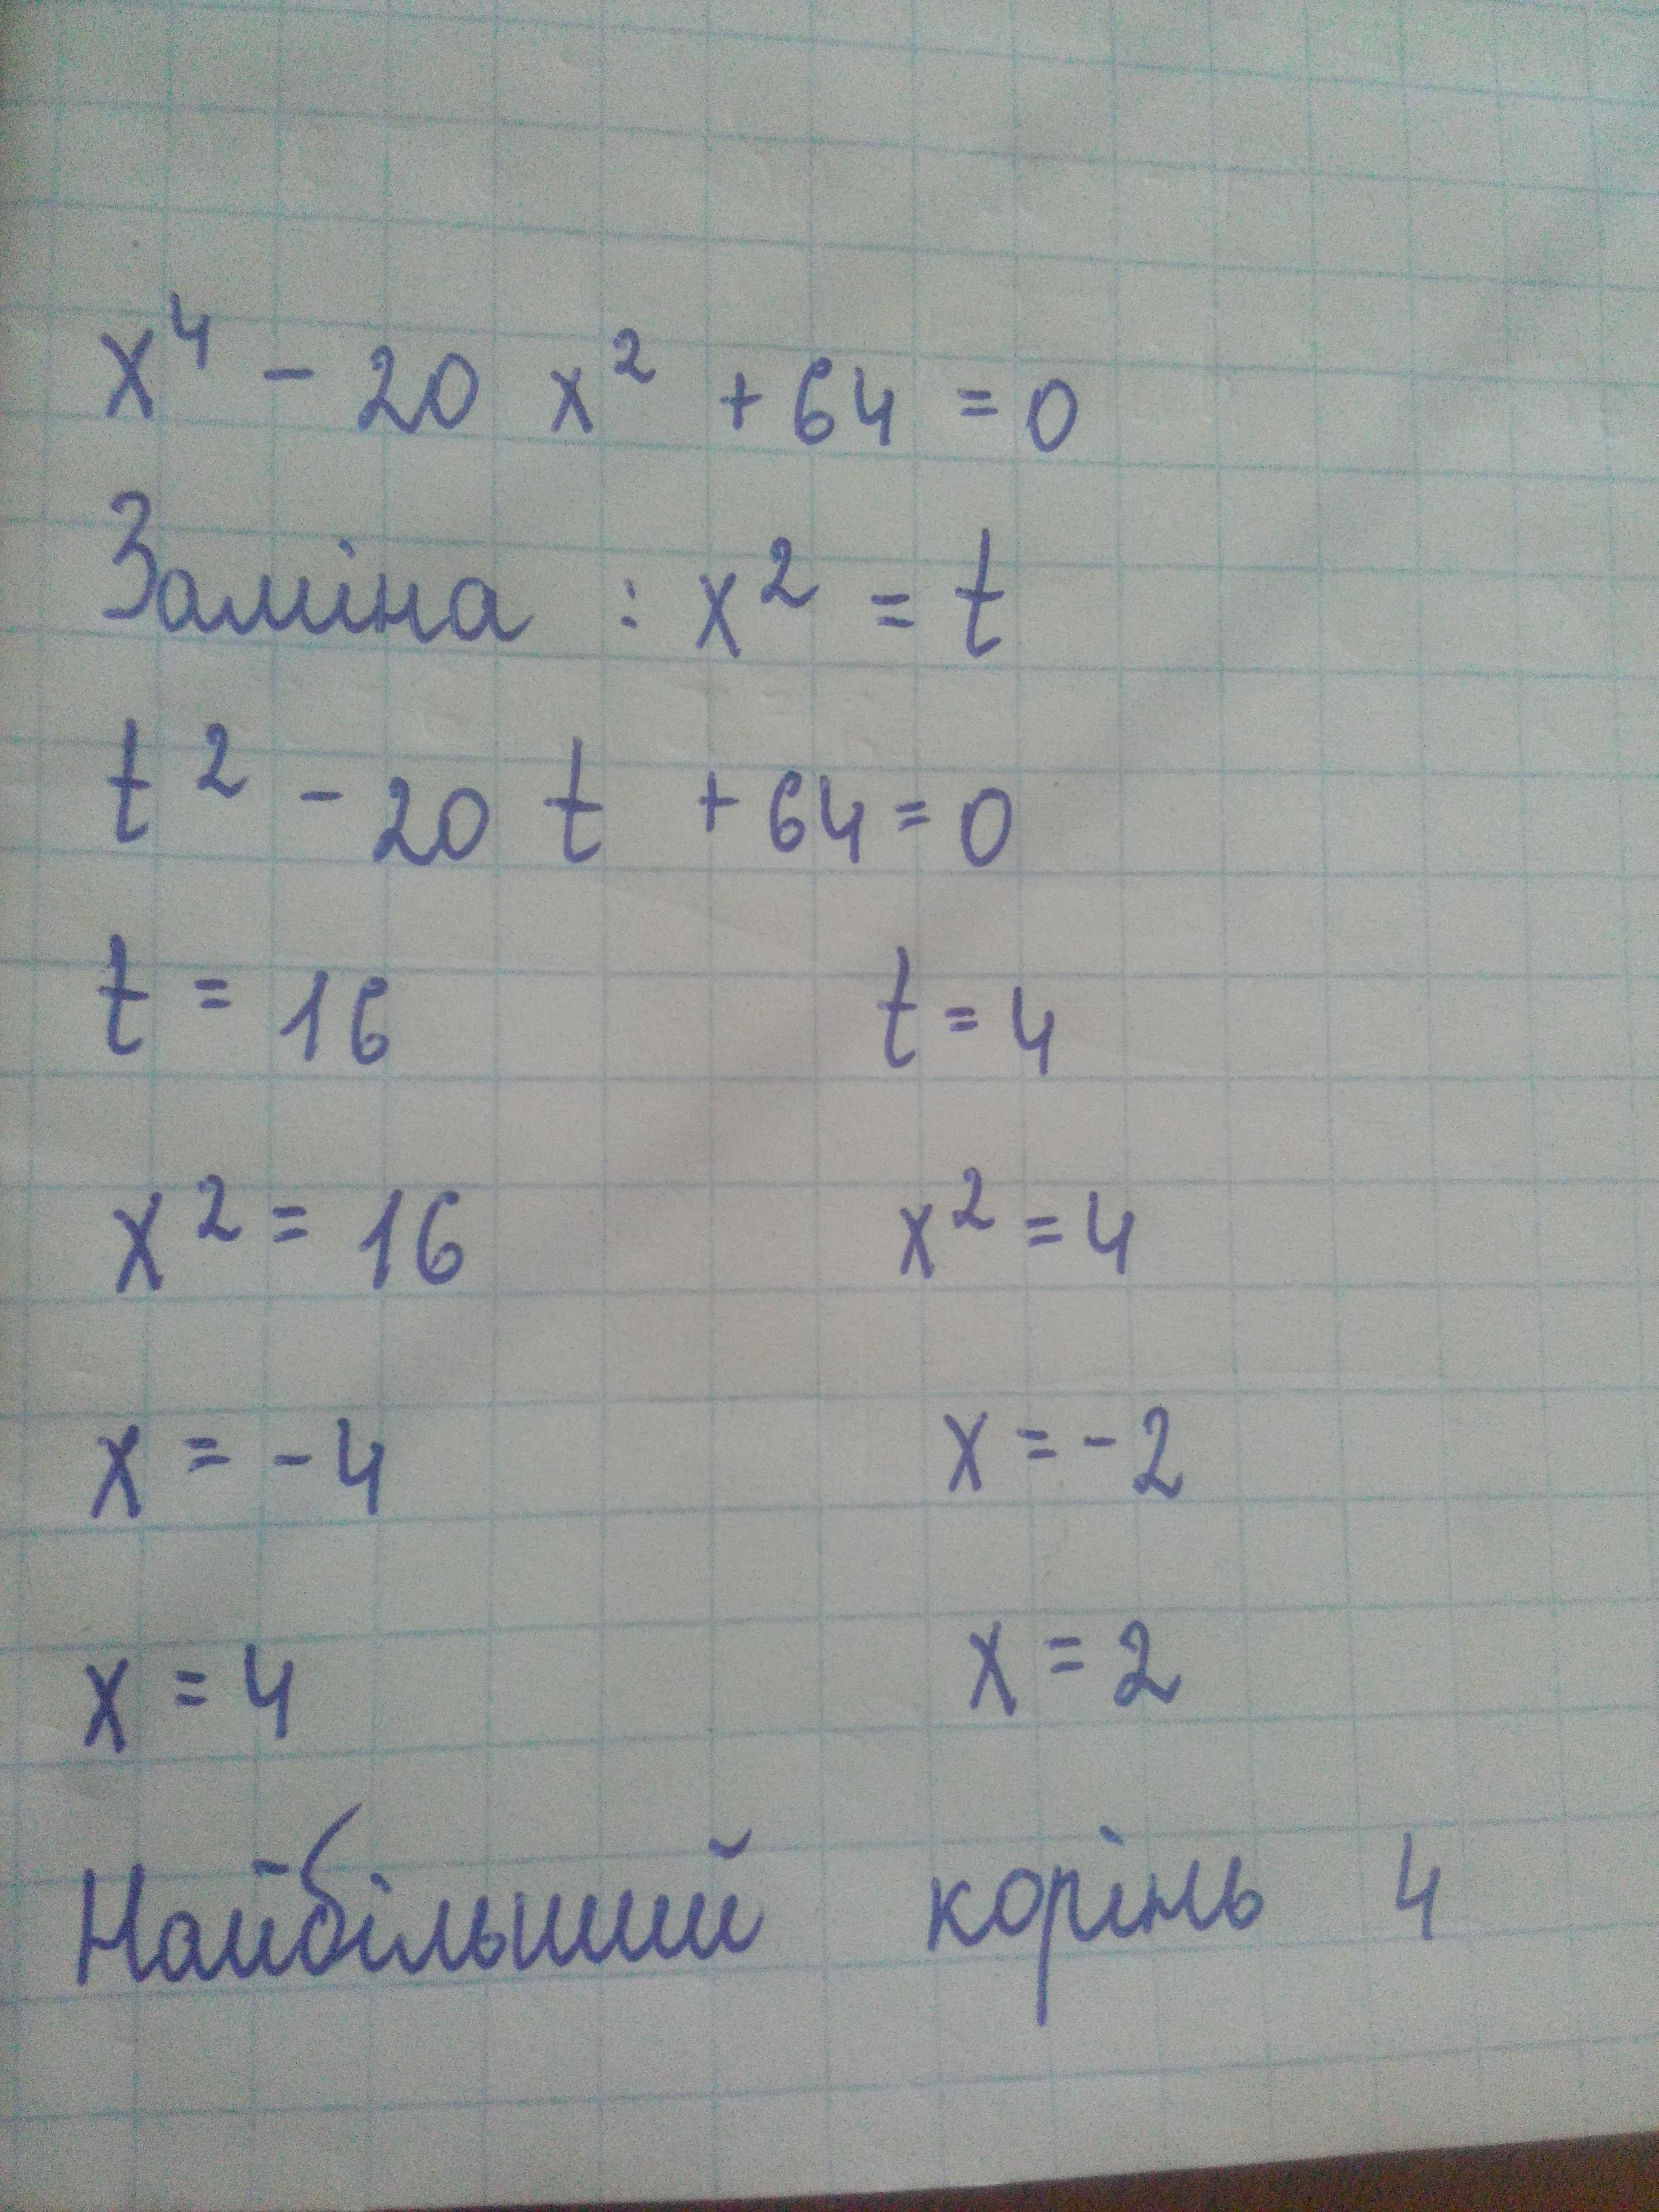 x⁴ - 20 x² + 64 = 0
Заміна : x² = t
t² - 20 t + 64 = 0
t = 16 t = 4
x² = 16 x² = 4
x = -4 x = -2
x = 4 x = 2
Найбільший корінь 4